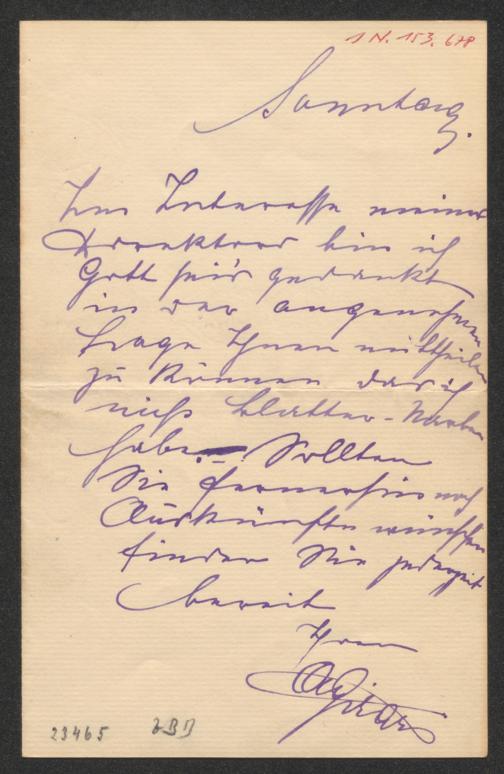 1 N. 153.678
Sonntag.
Im Interesse meines
Direktors bin ich
Gott sei's gedankt
in der angenehmen
Lage Ihnen mittheilen
zu können das ich
nicht Blatter-Narben
habe. – Sollten
Sie fernerhin noch
Auskünfte wünschen
finden Sie jederzeit
bereit
Ihren
AGirardi
23465 LBD